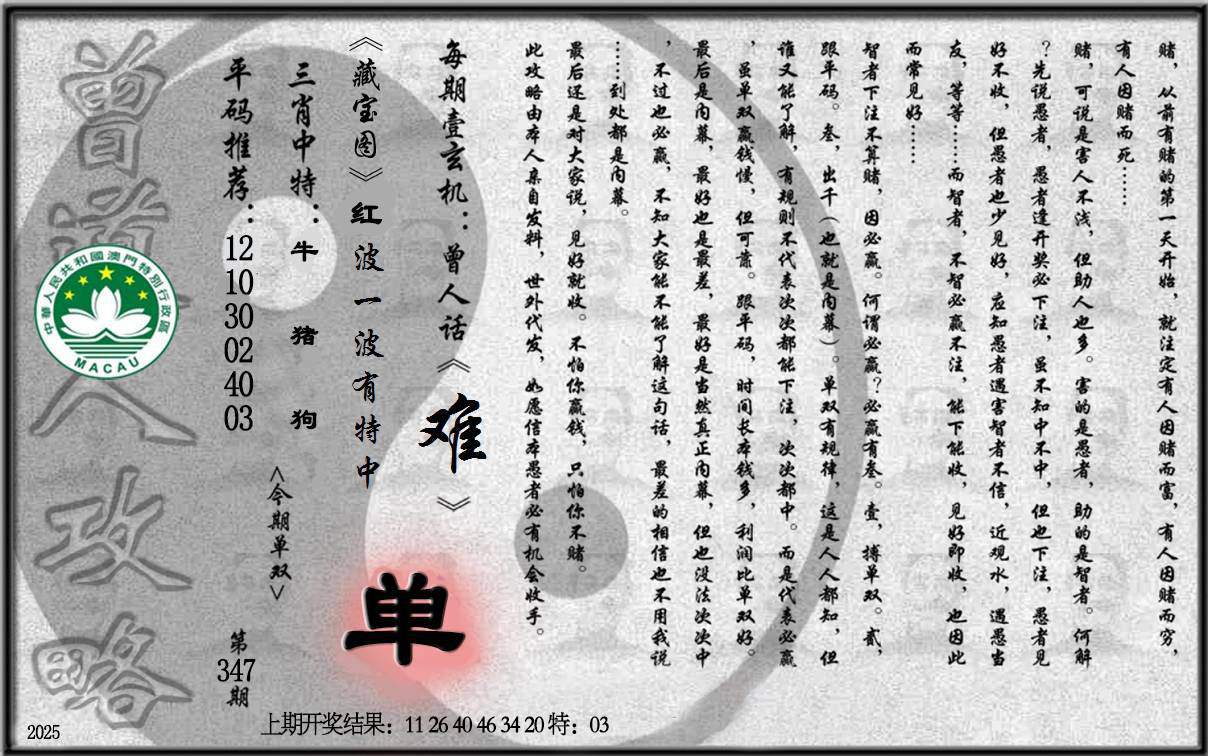 赌，从前有赌的第一天开始，就注定有人因赌而富，有人因赌而穷，
有人因赌而死……
赌，可说是害人不浅，但助人也多。害的是愚者，助的是智者。何解
？先说愚者，愚者逢开奖必下注，虽不知中不中，但也下注，愚者见
好不收，但愚者也少见好，应知愚者遇害智者不信，近观水，遇愚当
友，等等……而智者，不智必赢不注，能下能收，见好即收，也因此
而常见好……
智者下注不算赌，因必赢。何谓必赢？必赢有叁。壹，搏单双。贰，
跟平码。叁，出千（也就是内幕）。单双有规律，这是人人都知，但
谁又能了解，有规则不代表次次都能下注，次次都中。而是代表必赢
，虽单双赢钱慢，但可靠。跟平码，时间长本钱多，利润比单双好。
最后是内幕，最好也是最差，最好是当然真正内幕，但也没法次次中
，不过也必赢，不知大家能不能了解这句话，最差的相信也不用我说
……到处都是内幕。
最后还是对大家说，见好就收。不怕你赢钱，只怕你不赌。
此攻略由本人亲自发料，世外代发，如愿信本愚者必有机会收手。
每期壹玄机：曾人话《难》
《藏宝图》红波一波有特中
三肖中特：牛 猪 狗
平码推荐：12 10 30 02 40 03
<今期单双>
单
第347期
曾道人攻略
中華人民共和國澳門特別行政區
MACAU
上期开奖结果：11 26 40 46 34 20 特：03
2025